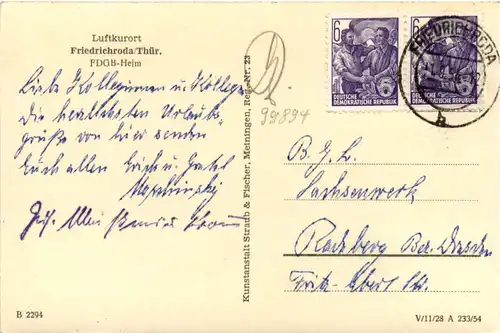 Luftkurort
Friedrichroda/Thür.
FDGB-Heim
Liebe Kolleginnen u. Kollegen
Die herzlichsten Urlaubs-
grüße von hier senden
Euch allen Erich u.
B 2294
Kunstanstalt Straub & Fischer, Meiningen, Reg.-Nr. 23
99894
6
DEUTSCHE
DEMOKRATISCHE REPUBLIK
6
DEUTSCHE
DEMOKRATISCHE REPUBLIK
FRIEDRICHRODA
B. G. L.
Sachsenwerk
Radeberg Bez. Dresden
Fritz-Ebert Str.
V/11/28 A 233/54